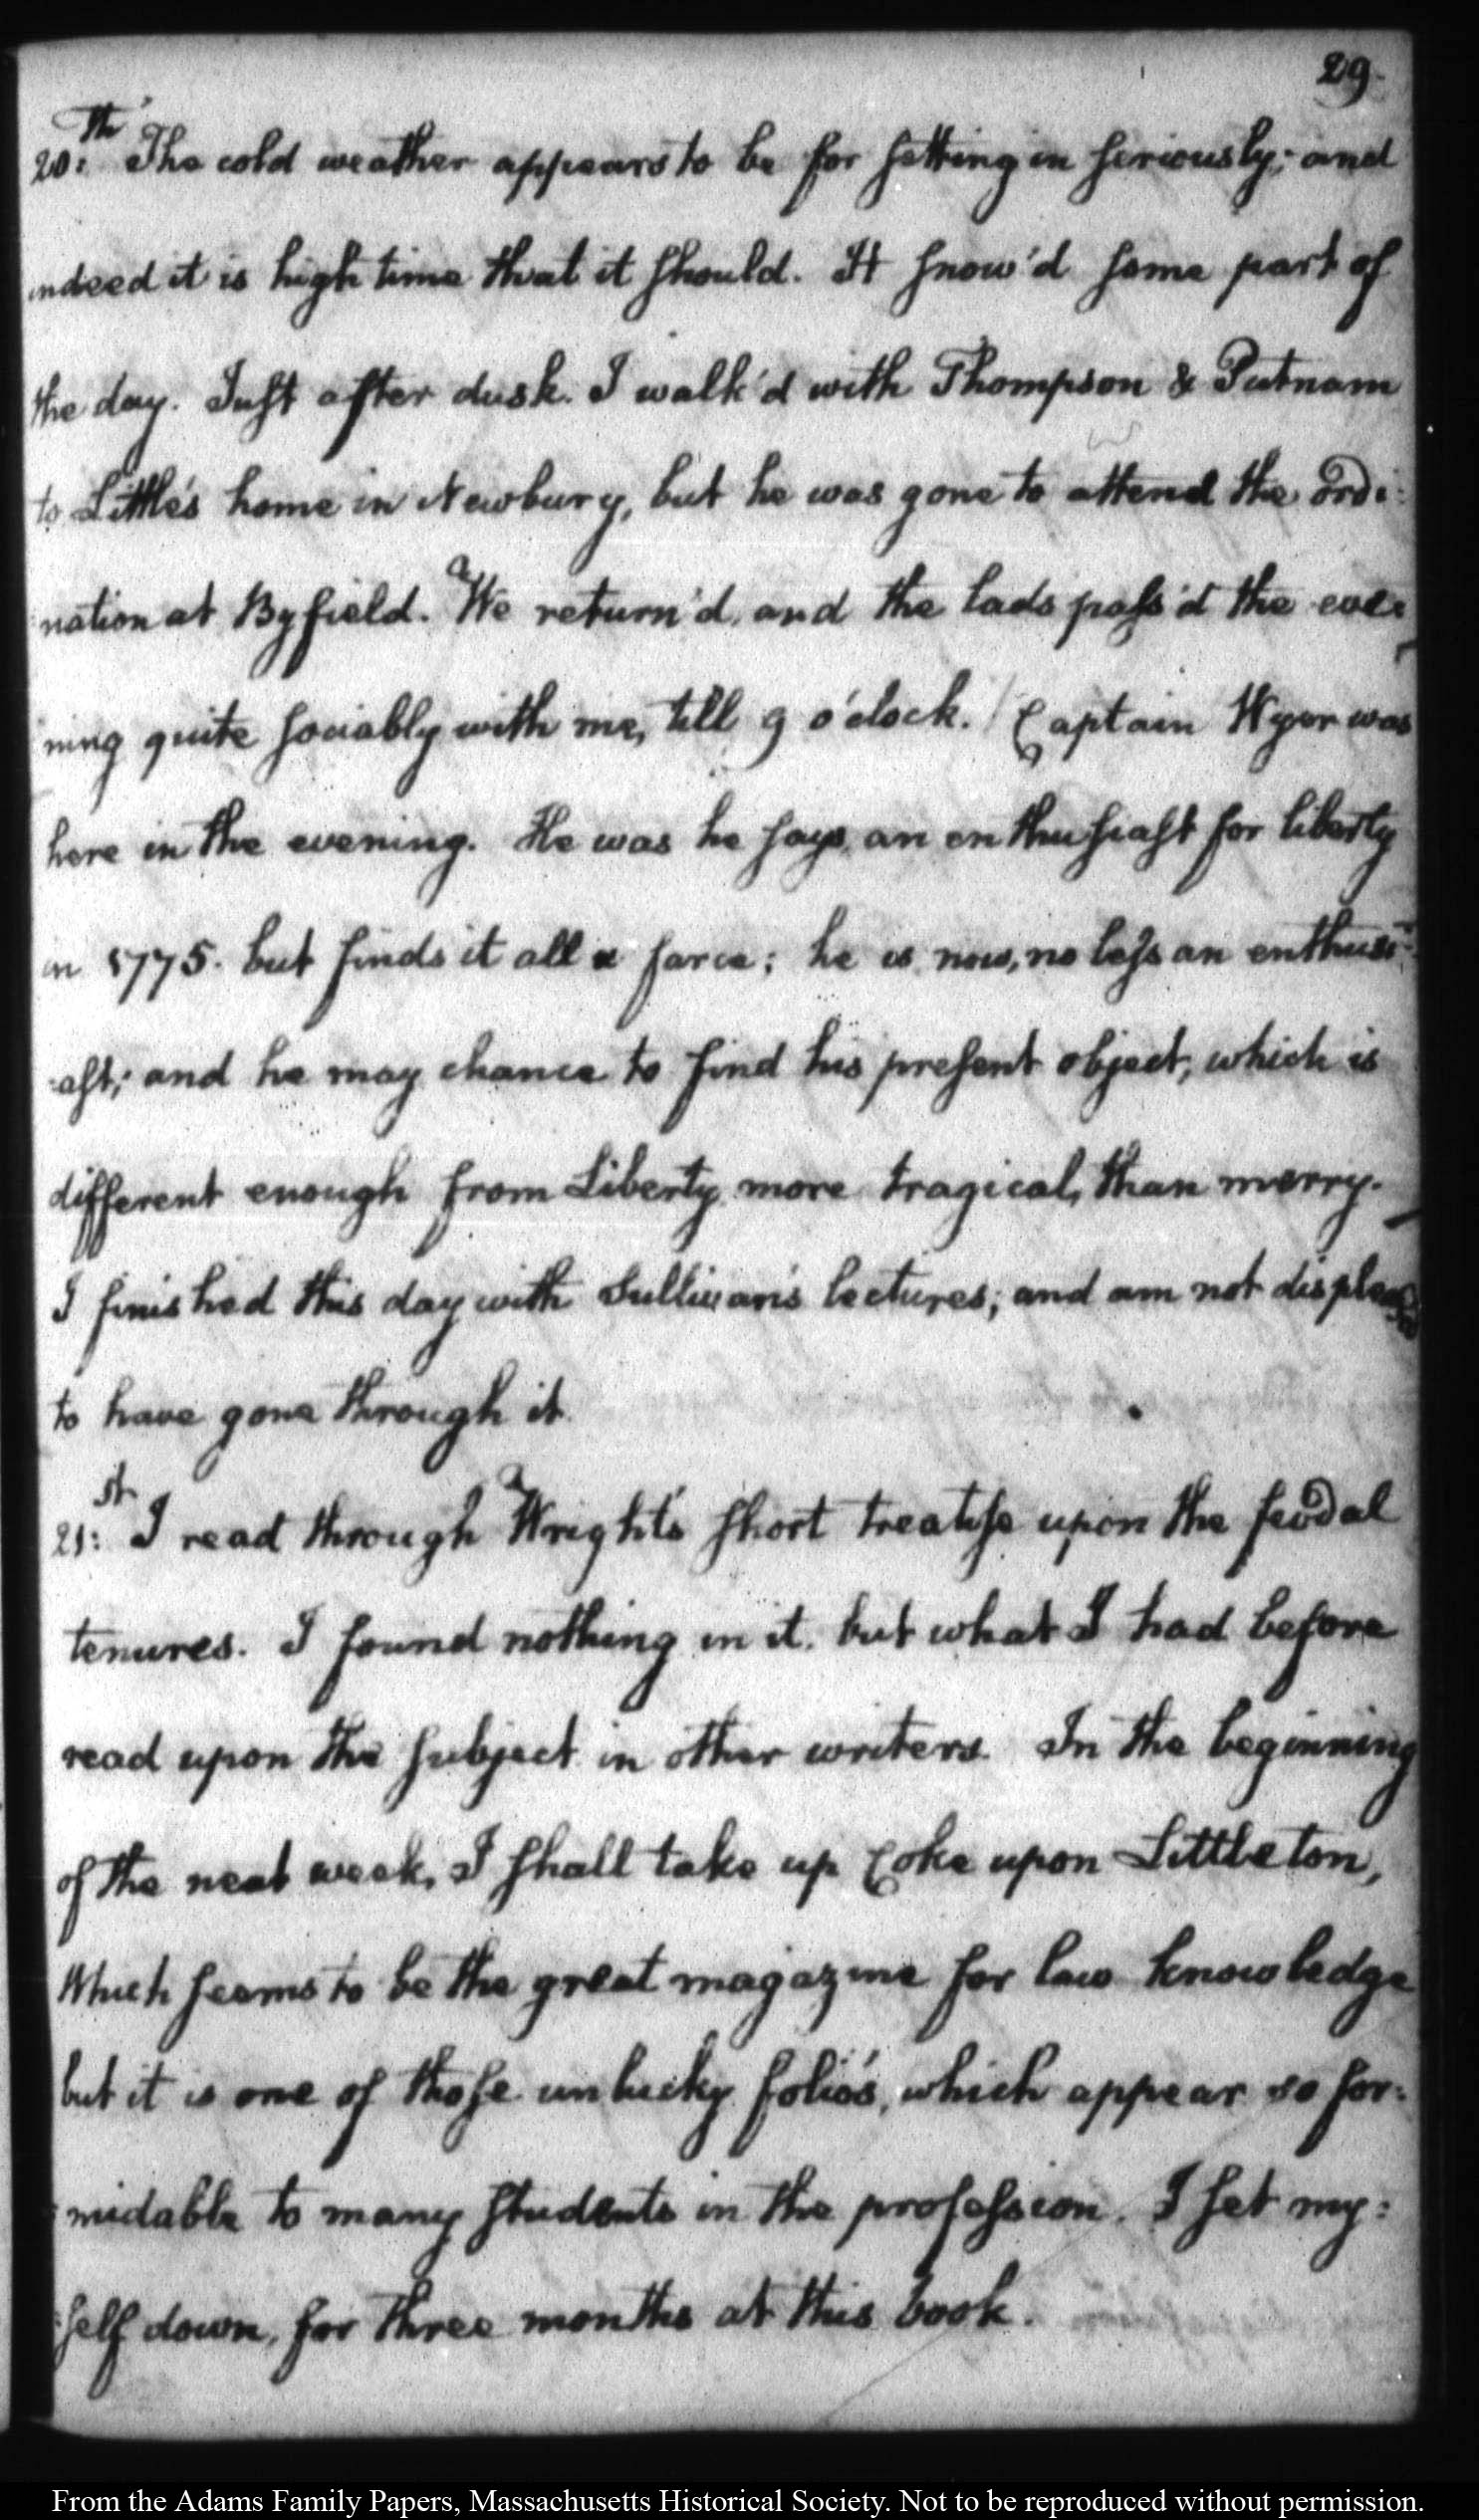 29.
20:th The cold weather appears to be for setting in seriously; and
indeed it is high time that it should. It snow'd some part of
the day. Just after dusk. I walk'd with Thompson & Putnam
to Little's home in Newbury, but he was gone to attend the ordi:
:nation at Byfield. We return'd, and the lads pass'd the eve:
ning quite sociably with me, till 9 o'clock. Captain Wyer was
here in the evening. He was he says, an enthusiast for liberty
in 1775. but finds it all a farce; he is now, no less an enthusi:
:ast; and he may chance to find his present object, which is
different enough from Liberty, more tragical, than merry.
I finished this day with Sullivan's lectures; and am not displeased
to have gone through it.
21:st I read through Wright's short treatise upon the feodal
tenures. I found nothing in it, but what I had before
read upon the subject in other writers. In the beginning
of the next week, I shall take up Coke upon Littleton,
Which seems to be the great magazine for law knowledge
but it is one of those unlucky folio's, which appear so for:
:midable to many students in the profession. I set my:
:self down, for three months at this book.
From the Adams Family Papers, Massachusetts Historical Society. Not to be reproduced without permission.